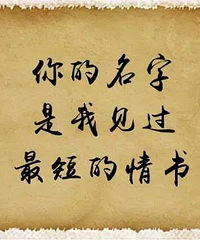 你的名字
是我见过
最短的情书